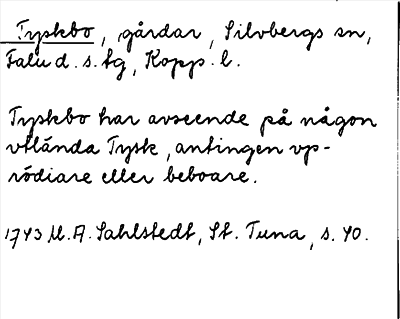 Tyskbo, gårdar, Silvbergs sn,
Falu d. s. fg, Kopp. l.
Tyskbo har avseende på någon
vtlända Tysk, antingen vp-
rödiare eller beboare.
1743 M. A. Sahlstedt, St. Tuna, s. 40.